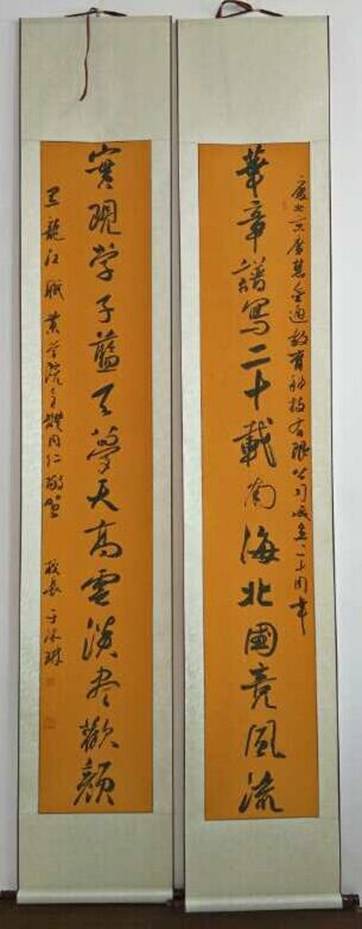 慶北京金慧金通教育科技有限公司成立二十周年
華章譜寫二十載南海北國竞風流
實現学子藍天夢天高雲淡盡歡顏
黑龍江職業学院全體同仁敬賀
校長 于